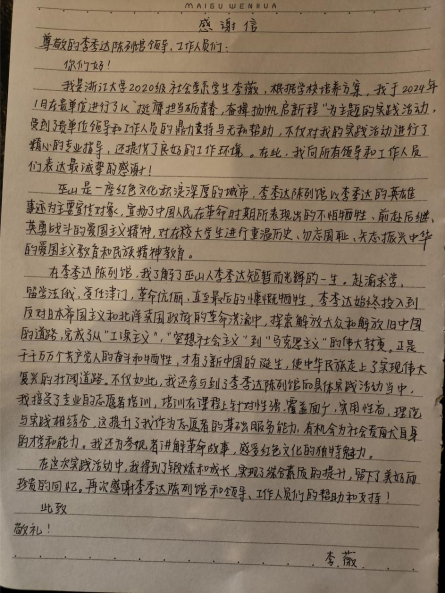 MAIBU WENHUA
感谢信
尊敬的李季达陈列馆领导,工作人员们:
你们好!
我是浙江大学2020级社会学系学生李薇,根据学校培养方案,我于2024年
1月在贵单位进行了以"挺膺担当砺青春,奋楫扬帆启新程"为主题的实践活动,
受到了贵单位领导和工作人员的鼎力支持与无私帮助,不仅对我的实践活动进行了
精心的专业指导,还提供了良好的工作环境。在此,我向所有领导和工作人员
们表达最诚挚的感谢!
巫山是一座红色文化积淀深厚的城市,李季达陈列馆以李季达的英雄
事迹为主要宣传对象,宣扬了中国人民在革命时期所表现出的不怕牺牲、前赴后继、
英勇战斗的爱国主义精神,对在校大学生进行重温历史、勿忘国耻、矢志振兴中华
的爱国主义教育和民族精神教育。
在李季达陈列馆,我了解了巫山人李季达短暂而光辉的一生。赴渝求学,
留学法俄,受任津门,革命伉俪,直至最后的慷慨牺牲,李季达始终投入到
反对日本帝国主义和北洋军国政府的革命洪流中,探索解放大众和解放旧中国
的道路,完成了从"工读主义","空想社会主义"到"马克思主义"的伟大转变。正是
千千万万个共产党人的奋斗和牺牲,才有了新中国的诞生,使中华民族走上了实现伟大
复兴的壮阔道路。不仅如此,我还参与到了李季达陈列馆的具体实践活动当中,
我接受了专业的志愿者培训,培训在课程上针对性强,覆盖面广,实用性高,理论
与实践相结合,这提升了我作为志愿者的基础服务能力,有机会为社会发挥自身
的才智和能力。我还为参观者讲解革命故事,感受红色文化的独特魅力。
在这次实践活动中,我得到了锻炼和成长,实现了综合素质的提升,留下了美好而
珍贵的回忆。再次感谢李季达陈列馆和领导、工作人员们的帮助和支持!
此致
敬礼!
李薇